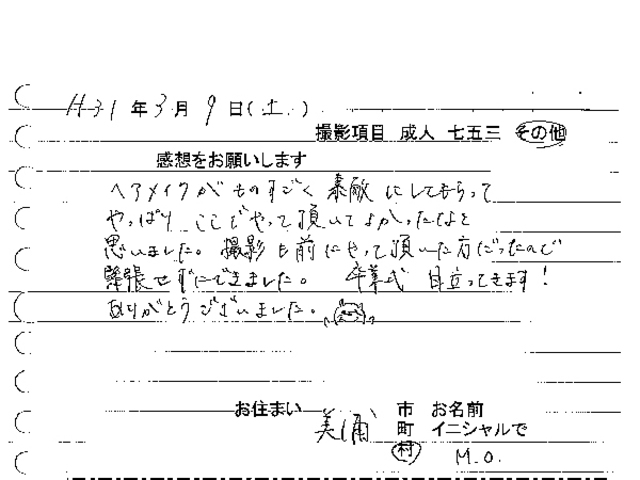 H31年3月9日(土)
撮影項目 成人 七五三 その他
感想をお願いします
ヘアメイクがものすごく素敵にしてもらって
やっぱりここでやって頂いてよかったなと
思いました。撮影も前にやって頂いた方だったので
緊張せずにできました。卒業式 目立ってきます!
ありがとうございました。
お住まい 美浦 市 お名前
町 イニシャルで
村 M.O.